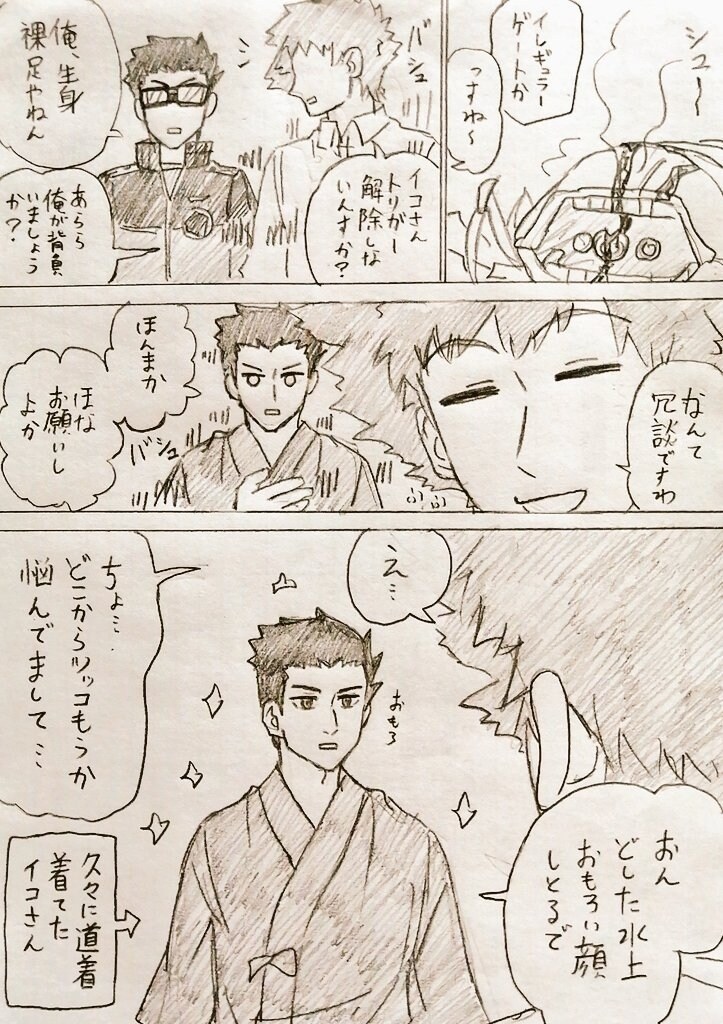 シュー〜
イレギュラー
ゲートか
っすね〜
バシュ
イコさん
トリガー
解除しな
いんすか?
俺、生身
裸足やねん
あらら
俺が背負
いましょう
か?
なんて
冗談ですわ
ふふ
ほんまか
ほな
お願いし
よか
バシュ
え…
おもろ
ちょ…
どこからツッコもうか
悩んでまして…
おん
どした水上
おもろい顔
しとるで
久々に道着
着てた
イコさん